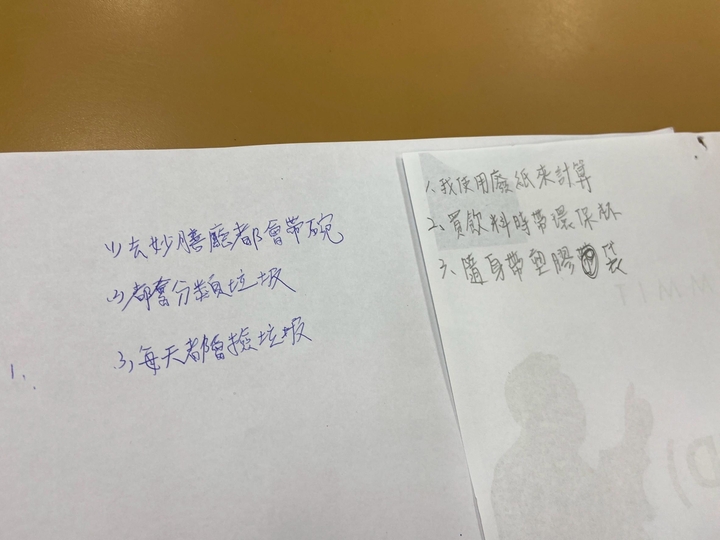 (1)去妙膳廳都會帶碗
(2)都會分類垃圾
(3)每天都會撿垃圾
1.
1.我使用廢紙來計算
2.買飲料時帶環保杯
3.隨身帶塑膠袋
MMIT
D)